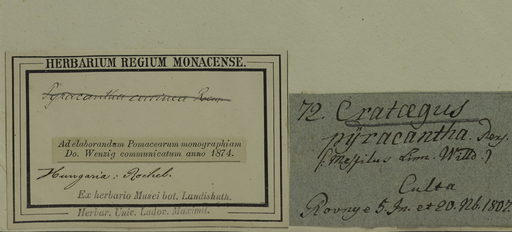 HERBARIUM REGIUM MONACENSE.
Pyracantha coccinea Roem.
Ad elaborandam Pomacearum monographiam
Do. Wenzig communicatum anno 1874.
Hungaria: Rochel.
Ex herbario Musei bot. Landishuth.
Herbar. Univ. Ludov. Maximil.
72. Crataegus
pÿracantha. Pers.
(Mespilus Linn. Willd.)
Culta
Rovnye 5 Jn. et 20. Nb. 1807.